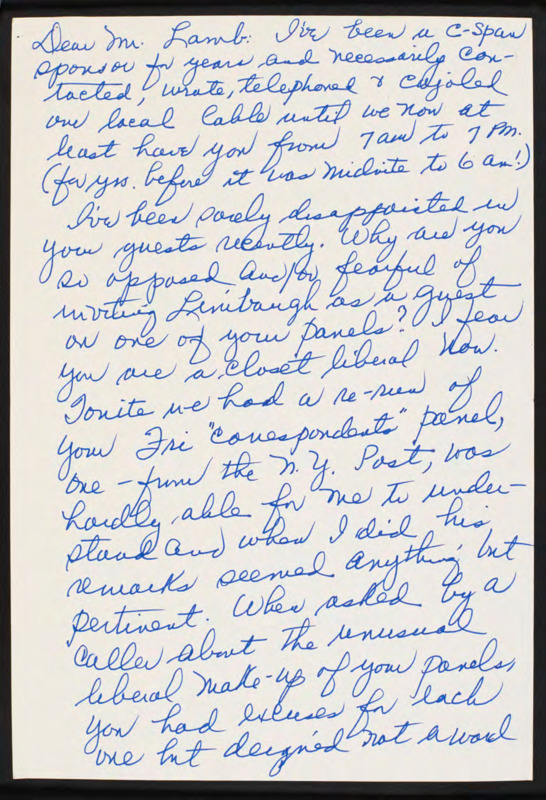 Dear Mr. Lamb: I've been a C-Span
sponsor for years and necessarily con-
tacted, wrote, telephoned & cajoled
our local Cable until we now at
least have you from 7 am to 7 PM.
(for yrs. before it was midnite to 6 am!)
I've been sorely disappointed in
your guests recently. Why are you
so opposed and/or fearful of
inviting Limbaugh as a guest
on one of your panels? I fear
you are a closet liberal now.
Tonite we had a re-run of
your Fri "correspondents" panel,
one - from the N.Y. Post, was
hardly able for me to under-
stand and when I did his
remarks seemed anything but
pertinent. When asked by a
caller about the unusual
liberal make-up of your panels,
you had excuses for each
one but deigned not a word